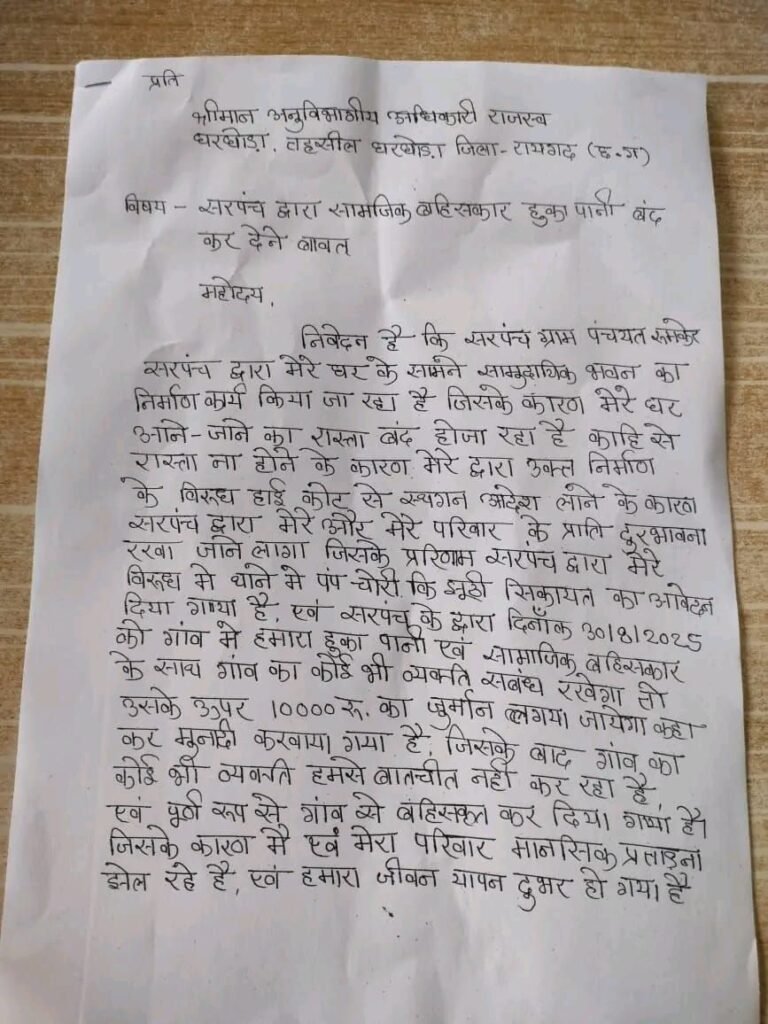 प्रति
श्रीमान अनुविभागीय अधिकारी राजस्व
घरघोड़ा, तहसील घरघोड़ा जिला-रायगढ़ (छ.ग)
विषय - सरपंच द्वारा सामजिक बहिसकार हुका पानी बंद
कर देने बावत
महोदय,
निवेदन है कि सरपंच ग्राम पंचयत रूमकेरा
सरपंच द्वारा मेरे घर के सामने सामुदायिक भवन का
निर्माण कार्य किया जा रहा है जिसके कारण मेरे घर
आने-जाने का रास्ता बंद होजा रहा है काहि से
रास्ता ना होने के कारण मेरे द्वारा उक्त निर्माण
के विरूध हाई कोट से स्थगन आदेश लाने के कारण
सरपंच द्वारा मेरे और मेरे परिवार के प्राति दुरभावना
रखा जाने लागा जिसके प्ररिणाम सरपंच द्वारा मेरे
विरूध मे थाने मे पंप चोरी कि झूठी सिकायत का आवेदन
दिया गाया है, एवं सरपंच के द्वारा दिनाँक 30/8/2025
को गांव मे हमारा हुका पानी एवं सामाजिक बहिसकार
के साथ गांव का कोई भी व्यक्ति सबंध रखेगा तो
उसके ऊपर 10000 रू. का जुर्मान लगया जायेगा कहा
कर मुनादी करवाया गया है, जिसके बाद गांव का
कोई भी व्यक्ती हमसे बातचीत नही कर रहा है
एवं पूर्ण रूप से गांव से बहिसकृत कर दिया गया है।
जिसके कारण मै एवं मेरा परिवार मानसिक प्रताड़ना
झेल रहे है, एवं हमारा जीवन यापन दुभर हो गया है